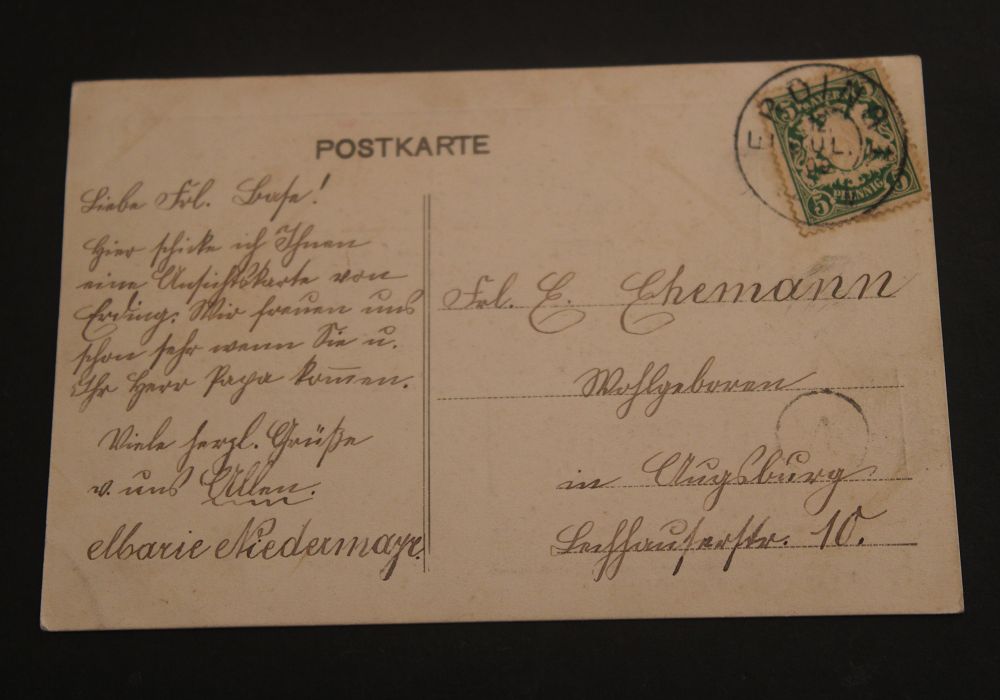 POSTKARTE
Liebe Frl. Base!
Hier schicke ich Ihnen
eine Ansichtskarte von
Erding. Wir freuen uns
schon sehr wenn Sie u.
Ihr Herr Papa kommen.
Viele herzl. Grüße
v. uns Allen.
Marie Niedermayr.
ERDING
JUL.
BAYERN
5
5
5
PFENNIG
Frl. E. Ehemann
Wohlgeboren
in Augsburg
Lechhauserstr. 10.